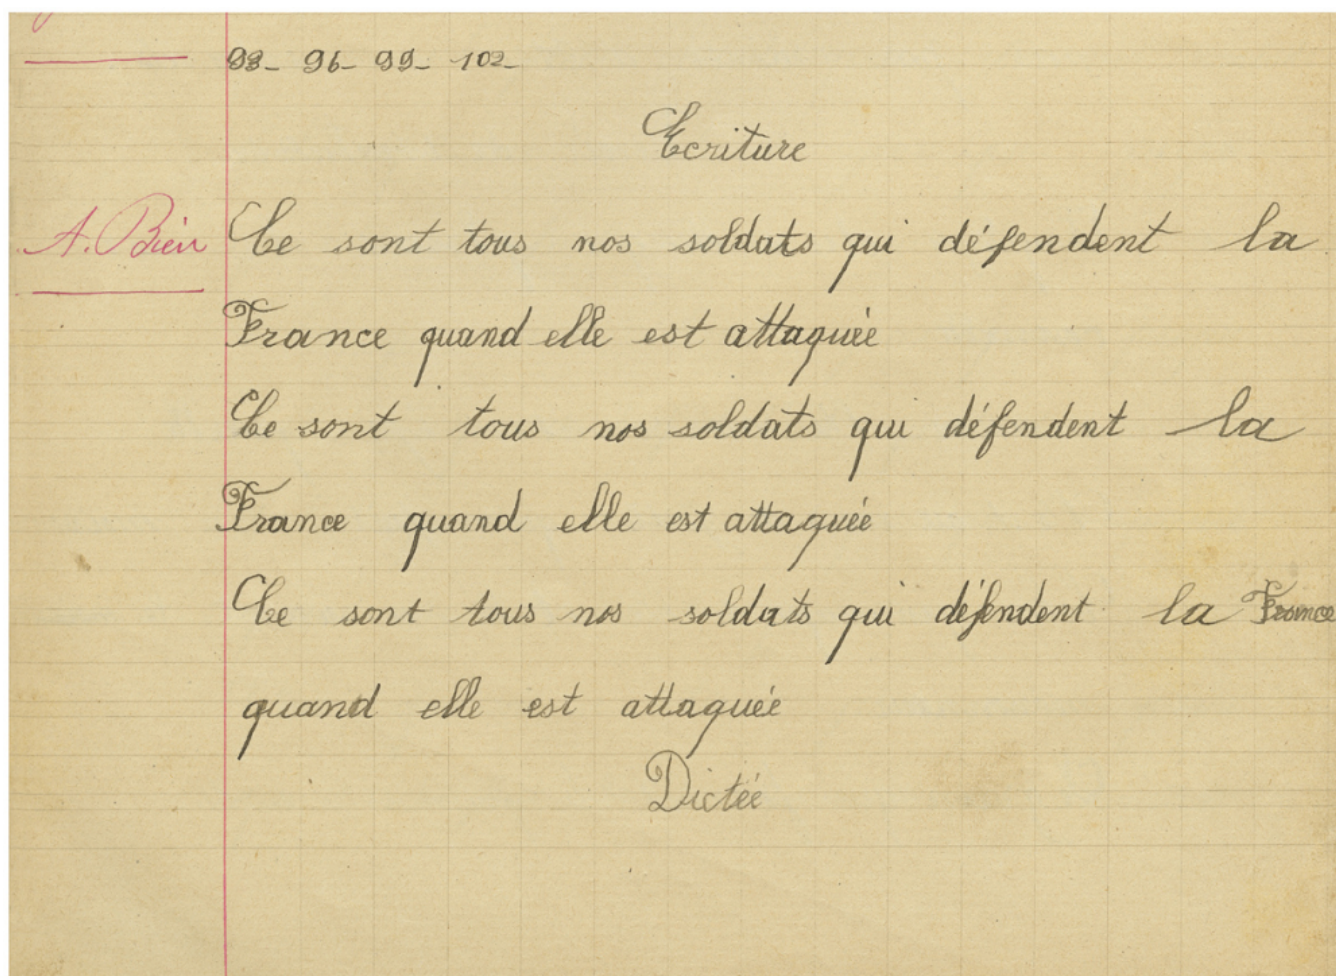 93_ 96_ 99_ 102_
Ecriture
A. Bien
Ce sont tous nos soldats qui défendent la
France quand elle est attaquée
Ce sont tous nos soldats qui défendent la
France quand elle est attaquée
Ce sont tous nos soldats qui défendent la France
quand elle est attaquée
Dictée